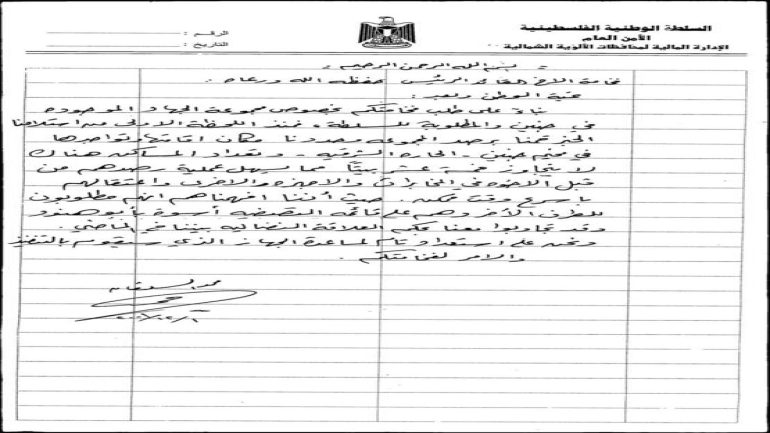 السلطة الوطنية الفلسطينية
الأمن العام
الإدارة المالية لمحافظات الألوية الشمالية
الرقم :
التاريخ :
بسم الله الرحمن الرحيم
فخامة الاخ القائد الرئيس حفظه الله ورعاه .
تحية الوطن وبعد :
بناءً على طلب فخامتكم بخصوص مجموعة الجهاد الموجوده
في جنين والمطلوبة للسلطة ، فمنذ اللحظة الاولى من استلامنا
الخبر قمنا برصد المجموعه وحددنا مكان اقامتها وتواجدها
في مخيم جنين - الحاره الشرقيه - وتعداد المساكن هناك
لا يتجاوز خمسة عشر بيتاً مما يسهل عملية رصدهم من
قبل الاخوه في المخابرات والاجهزه والاخرى واعتقالهم
باسرع وقت ممكن . حيث أننا افهمناهم انهم مطلوبون
للطرف الآخر وهم على قائمة التصفيه أسوة بأبو هنود
وقد تجاوبوا معنا بحكم العلاقة النضاليه بيننا في الماضي .
ونحن على استعداد تام لمساعدة الجهاز الذي سيقوم بالتنفيذ
والامر لفخامتكم .